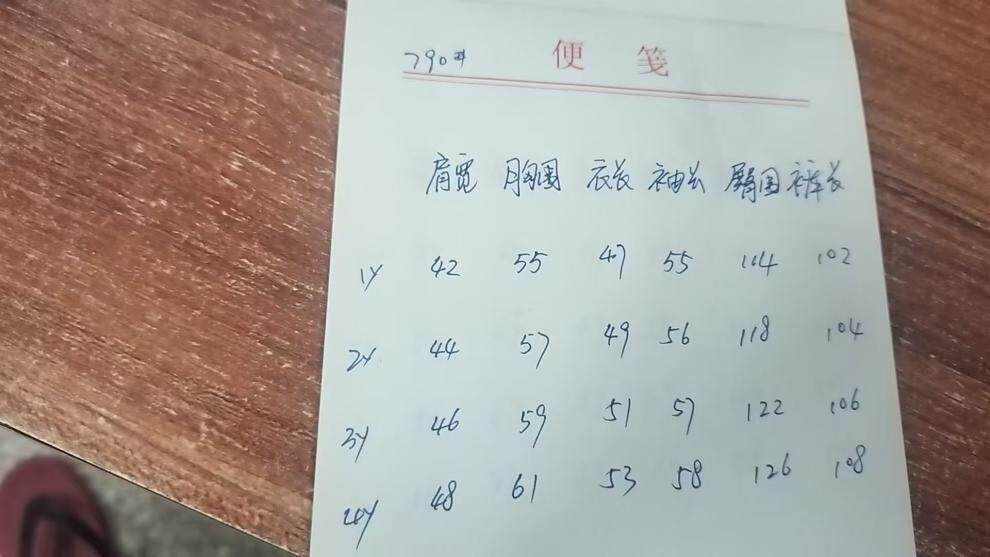 790# 便笺
肩宽 胸围 衣长 袖长 臀围 裤长
1Y 42 55 47 55 114 102
2Y 44 57 49 56 118 104
3Y 46 59 51 57 122 106
4Y 48 61 53 58 126 108